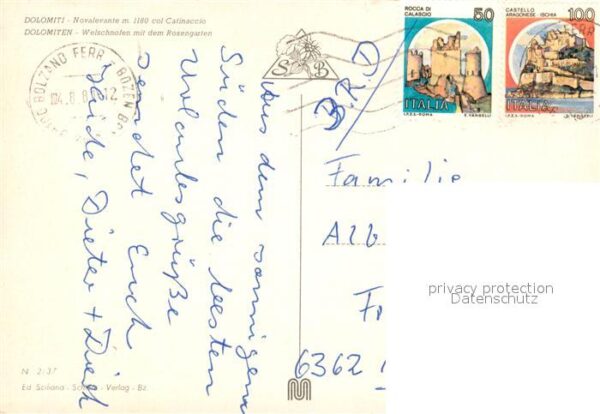 DOLOMITI - Novalevante m. 1180 col Catinaccio
DOLOMITEN - Welschnofen mit dem Rosengarten
BOLZANO FERR - BOZEN
04.8
S B
ROCCA DI
CALASCIO
50
ITALIA
I.P.Z.S. ROMA
E. VANGELLI
CASTELLO
ARAGONESE ISCHIA
100
ITALIA
I.P.Z.S. ROMA
Aus dem sonnigen
Süden die besten
Urlaubsgrüße
sendet Euch
Dieter +
Familie
Alb
F
6362
privacy protection
Datenschutz
Ed
Verlag - Bz.
M